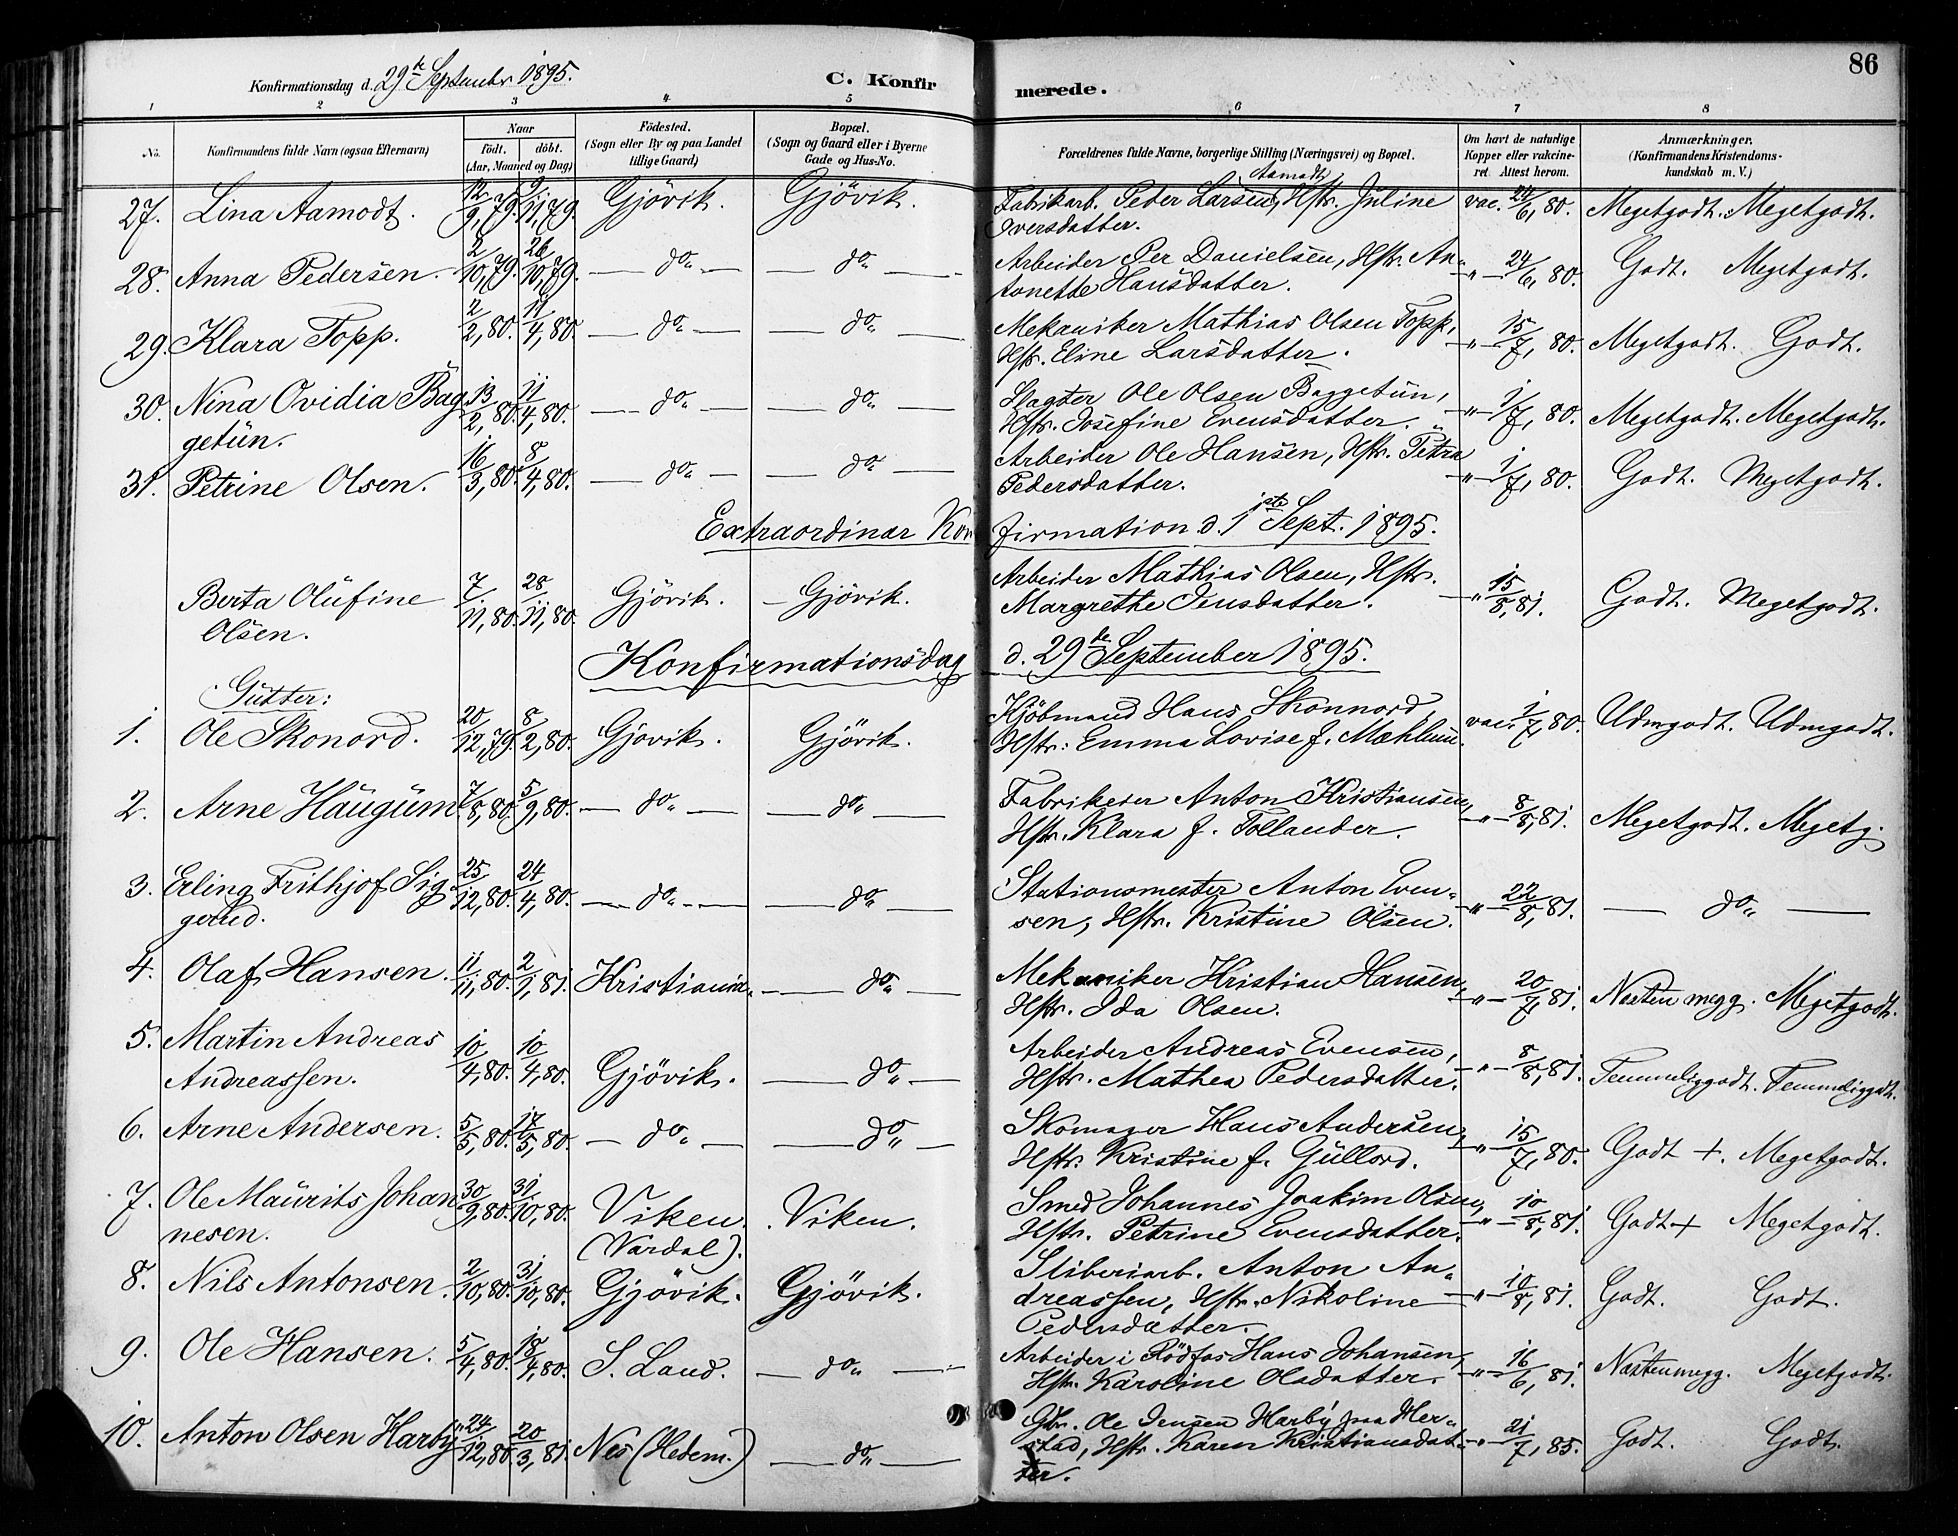 Konfirmationsdag d. 29de September 1895.
C. Konfirmerede.
86
1 2 3 4 5 6 7 8
No.
Konfirmandens fulde Navn (ogsaa Efternavn)
Naar
født. døbt.
(Aar, Maaned og Dag)
Födested.
(Sogn eller By og paa Landet
tillige Gaard)
Bopæl.
(Sogn og Gaard eller i Byerne
Gade og Hus-No.
Forældrenes fulde Navne, borgerlige Stilling (Næringsvei) og Bopæl.
Om havt de naturlige
Kopper eller vakcine-
ret. Attest herom.
Anmærkninger.
(Konfirmandens Kristendoms-
kundskab m. V.)
27. Lina Aamodt. 12/9, 79. 9/11, 79. Gjövik. Gjövik. Fabrikarb. Peder Larsen Aamodt, Hstr. Juline
Iversdatter. vac. 24/6, 80. Megetgodt. Megetgodt.
28. Anna Pedersen. 2/10, 79. 26/10, 79. — do — — do — Arbeider Per Danielsen, Hstr. An-
tonette Hansdatter. — " — 24/6, 80. Godt. Megetgodt.
29. Klara Topp. 2/2, 80. 11/4, 80. — do — — do — Mekaniker Mathias Olsen Topp,
Hstr. Eline Larsdatter. — " — 15/7, 80. Megetgodt. Godt.
30. Nina Ovidia Bag- 13/2, 80. 11/4, 80. — do — — do — Slagter Ole Olsen Baggetun,
getun. Hstr. Josefine Evensdatter. — " — 1/7, 80. Megetgodt. Megetgodt.
31. Petrine Olsen. 16/3, 80. 8/4, 80. — do — — do — Arbeider Ole Hansen, Hstr. Petra
Pedersdatter. — " — 1/7, 80. Godt. Megetgodt.
Extraordinær Konfirmation d. 1ste Sept. 1895.
Berta Olufine 7/11, 80. 28/11, 80. Gjövik. Gjövik. Arbeider Mathias Olsen, Hstr.
Olsen. Margrethe Jensdatter. — " — 15/8, 81. Godt. Megetgodt.
Konfirmationsdag d. 29de September 1895.
Gutter:
1. Ole Skonord. 20/12, 79. 8/2, 80. Gjövik. Gjövik. Kjöbmand Hans Skonnord,
Hstr: Emma Lovise f. Mæhlum. vac. 1/7, 80. Udmgodt. Udmgodt.
2. Arne Haugum. 7/8, 80. 5/9, 80. — do — — do — Fabrikeier Anton Kristiansen,
Hstr. Klara f. Tollander. — " — 8/8, 81. Megetgodt. Megetg.
3. Erling Frithjof Sig- 25/12, 80. 24/4, 80. — do — — do — Stationsmester Anton Even-
gerud. sen, Hstr. Kristine Olsen. — " — 22/8, 81. — do —
4. Olaf Hansen. 11/11, 80. 2/1, 81. Kristiania. — do — Mekaniker Kristian Hansen,
Hstr. Ida Olsen. — " — 20/7, 81. Næsten megg. Megetgodt.
5. Martin Andreas 10/4, 80. 10/4, 80. Gjövik. — do — Arbeider Andreas Evensen,
Andreassen. Hstr. Mathea Pedersdatter. — " — 8/8, 81. Temmeliggodt. Temmeliggodt.
6. Arne Andersen. 5/5, 80. 17/5, 80. — do — — do — Skomager Hans Andersen,
Hstr. Kristine f. Gullord. — " — 15/7, 80. Godt +. Megetgodt.
7. Ole Maurits Johan- 30/9, 80. 31/10, 80. Viken. Viken. Smed Johannes Joakim Olsen,
nesen. (Vardal). Hstr. Petrine Evensdatter. — " — 10/8, 81. Godt + Megetgodt.
8. Nils Antonsen. 2/10, 80. 31/10, 80. Gjövik. Gjövik. Sliberiarb. Anton An-
dreassen, Hstr. Nikoline
Pedersdatter. — " — 10/8, 81. Godt. Godt.
9. Ole Hansen. 5/4, 80. 18/4, 80. S. Land. — do — Arbeider i Rödfos Hans Johansen,
Hstr. Karoline Olsdatter. — " — 16/6, 81. Næstenmegg. Megetgodt.
10. Anton Olsen Harby. 24/12, 80. 20/3, 81. Nes (Hedem.) — do — Gbr. Ole Jensen Harby paa Her-
stad, Hstr. Karen Kristiansdat-
ter. — " — 21/7, 85. Godt. Godt.